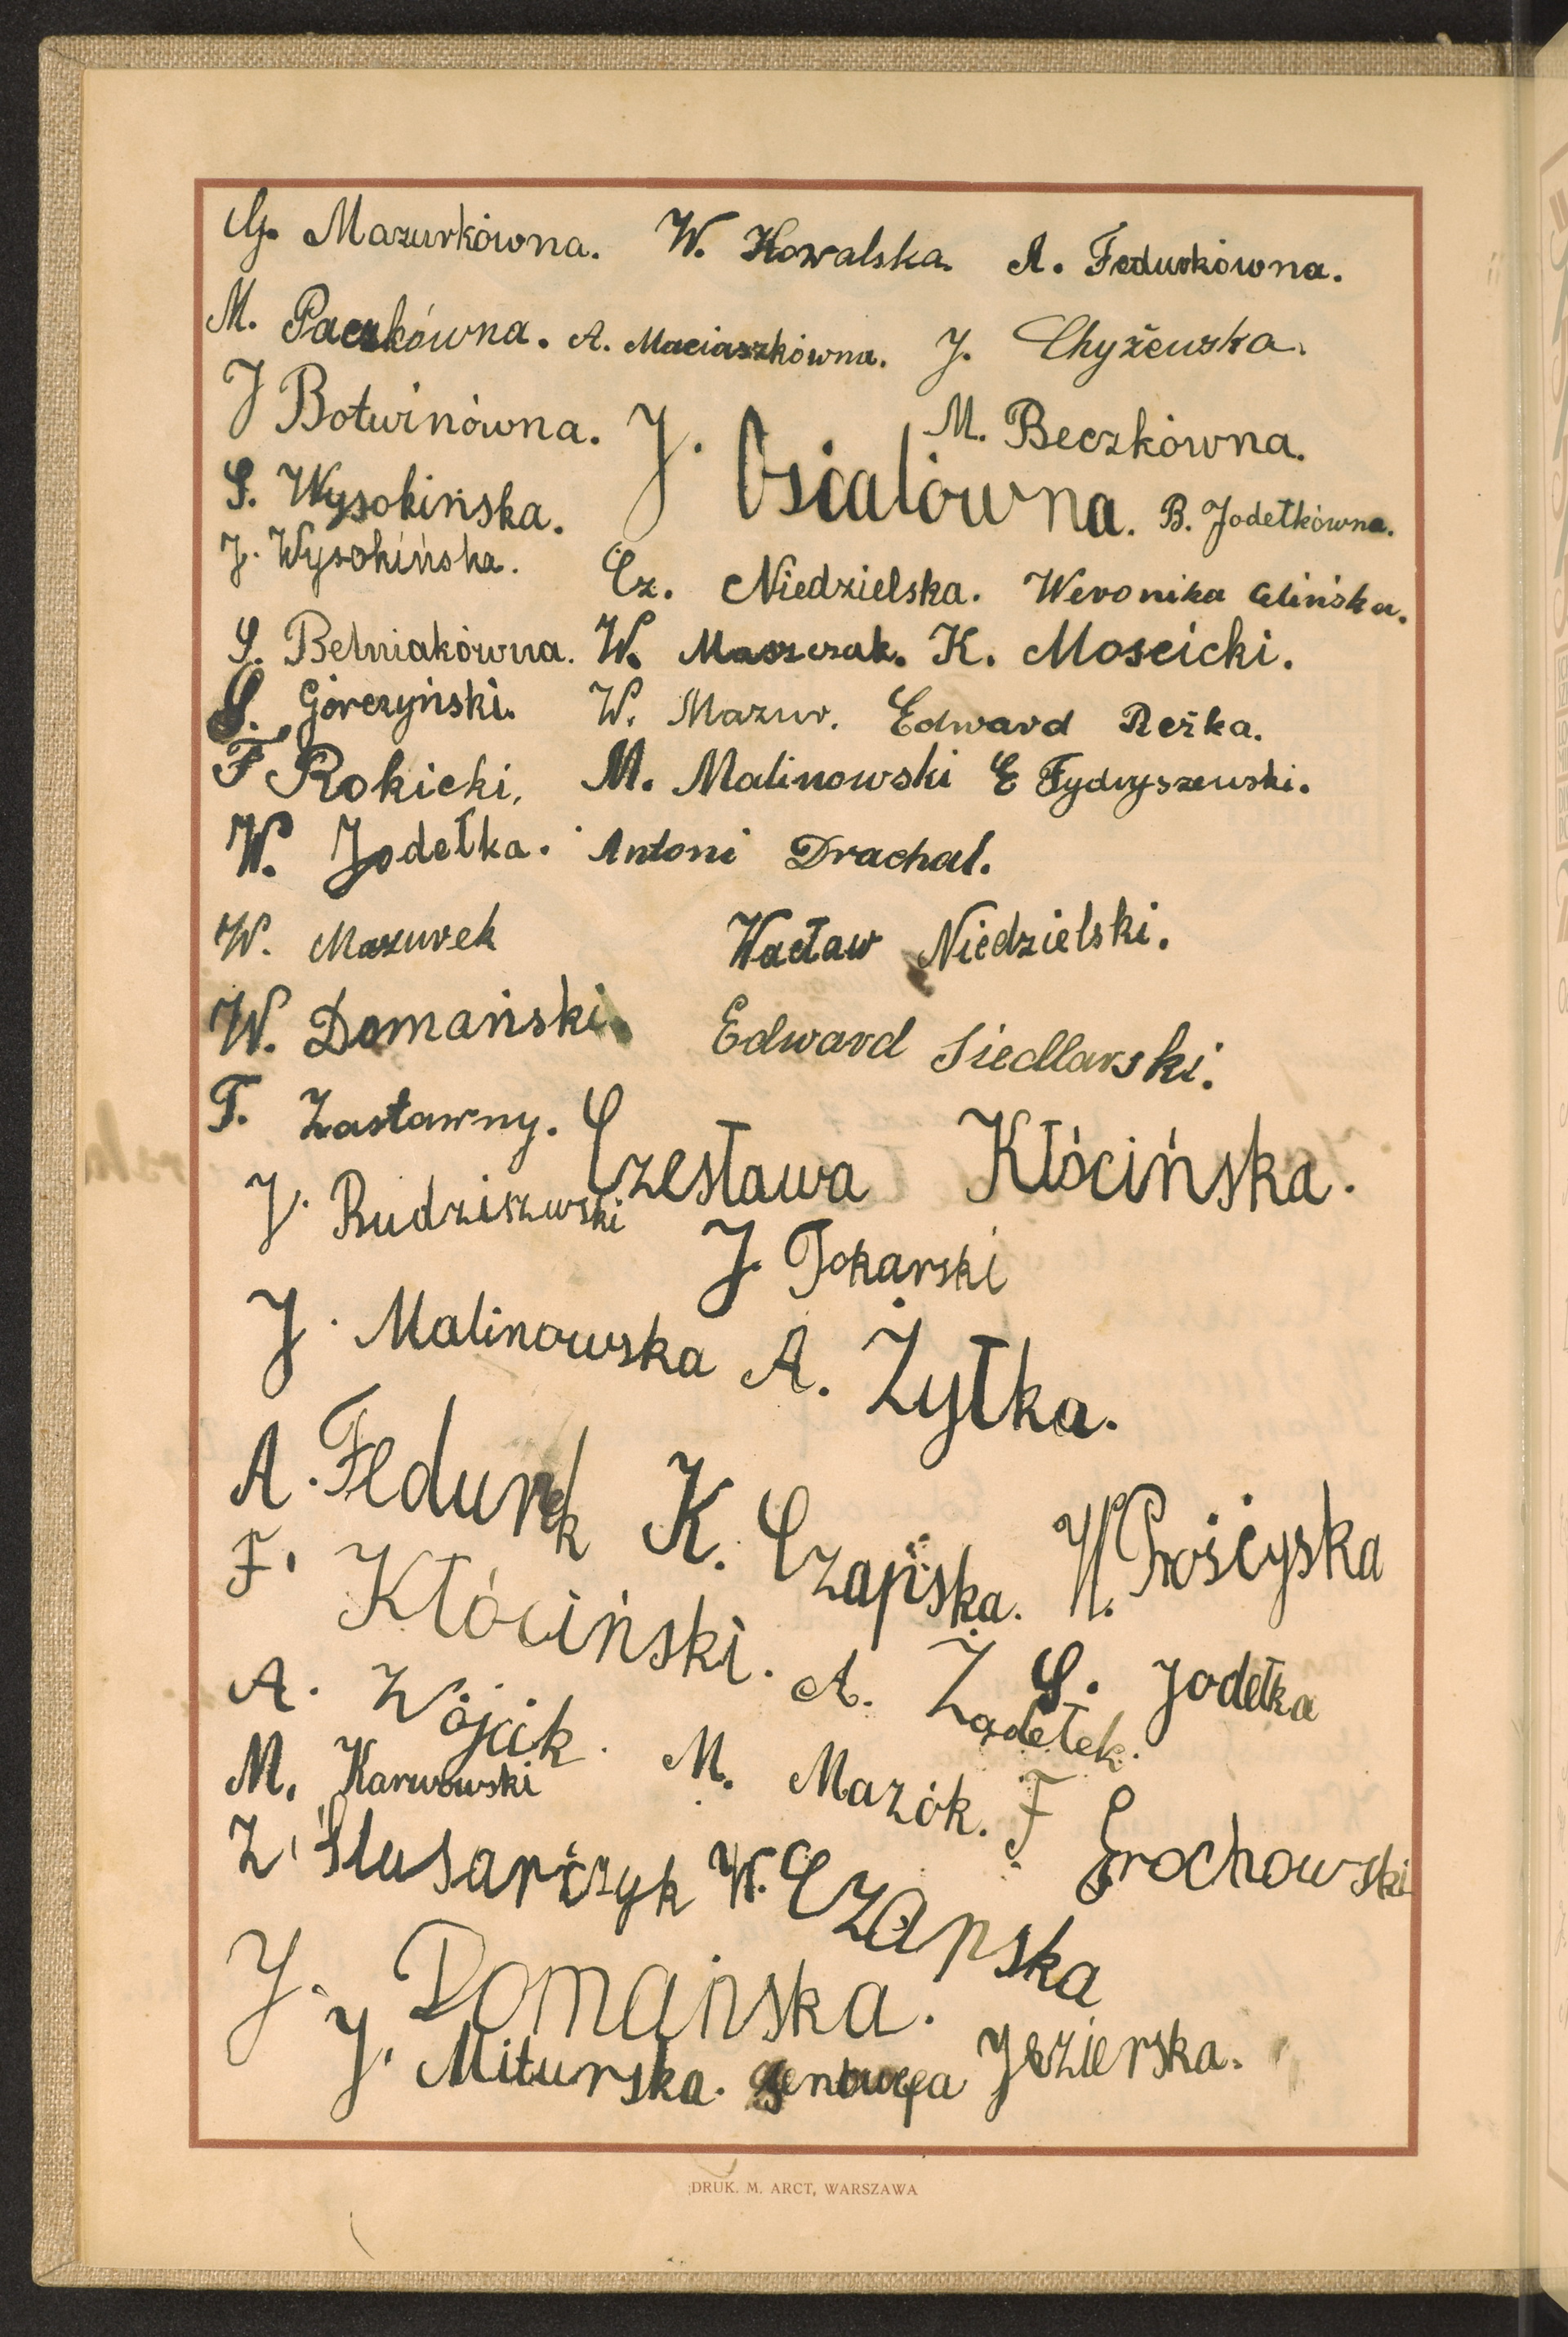 G. Mazurkówna. W. Kowalska. A. Fedurkówna.
M. Paczkówna. A. Maciaszkówna. J. Chyżewska.
J Botwinówna. J. Osialówna. M. Beczkówna.
S. Wysokińska. B. Jodełkówna.
J. Wysokińska. Cz. Niedzielska. Weronika Glińska.
S. Betniakówna. W. Maszczak. K. Mościcki.
S. Górczyński. W. Mazur. Edward Reżka.
F Rokicki. M. Malinowski E Fydryszewski.
W. Jodełka. Antoni Drachal.
W. Mazurek Wacław Niedzielski.
W. Domański. Edward Siedlarski.
T. Zastawny. Czesława Kłócińska.
J. Rudziszewski J. Tokarski
J. Malinowska A. Żyłka.
A. Fedurek K. Czapska. W.
F. Kłóciński. A. Zadełek. S. Jodełka
A. Wójcik. M. Mazók.
M. Karwowski F Grochowski
Z. Ślusarczyk W. Czapska
J. Domańska.
J. Miturska. Genowefa Jezierska.
DRUK. M. ARCT, WARSZAWA